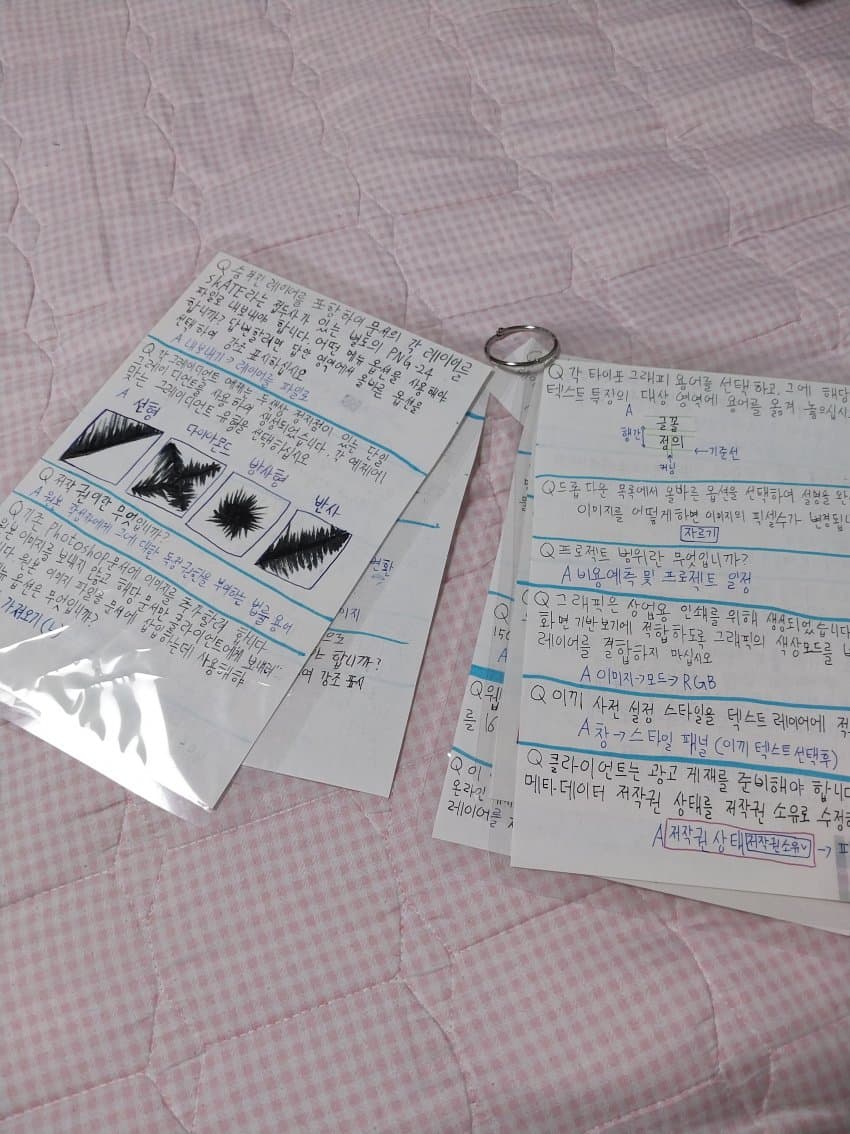 Q 숨겨진 레이어를 포함하여 문서의 각 레이어를
SKATE라는 접두사가 있는 별도의 PNG-24
파일로 내보내야 합니다. 어떤 메뉴 옵션을 사용해야
합니까? 답변할려면 답안 영역에서 올바른 옵션을
선택하여 강조 표시하십시오
A 내보내기 → 레이어를 파일로
Q 각 그레이디언트 예제는 두 색상 정지점이 있는 단일
그레이디언트를 사용하여 생성되었습니다. 각 예제에
맞는 그레이디언트 유형을 선택하십시오
A 선형
다이아몬드
방사형
반사
Q 저작권이란 무엇입니까?
A 원본 작업에게 그에 대한 독점권한을 부여하는 법률 용어
Q 기존 Photoshop문서에 이미지를 추가할려 합니다.
원본 이미지를 보내지 않고 해당 문서만 클라이언트에게 보내려
니다 원본 이미지 파일을 문서에 삽입하는데 사용해야
메뉴 옵션은 무엇입니까?
가져오기
변화
이미지
으로
합니까?
여 강조 표시
Q 각 타이포그래피 용어를 선택하고, 그에 해당
텍스트 특장의 대상 영역에 용어를 옮겨 놓으십시오
A
글꼴
행간
정의
←기준선
커닝
Q 드롭다운 목록에서 올바른 옵션을 선택하여 설명을 완
이미지를 어떻게 하면 이미지의 픽셀수가 변경됩니
자르기
Q 프로젝트 범위란 무엇입니까?
A 비용예측 및 프로젝트 일정
Q 그래픽은 상업용 인쇄를 위해 생성되었습니다
화면 기반 보기에 적합하도록 그래픽의 색상모드를 변
레이어를 결합하지 마십시오
A 이미지→모드→RGB
Q 이끼 사전 설정 스타일을 텍스트 레이어에 적
A 창→스타일 패널 (이끼 텍스트선택후)
Q 클라이언트는 광고 게재를 준비해야 합니다
메타데이터 저작권 상태를 저작권 소유로 수정하
A 저작권 상태 저작권소유 → 파
Q
150
A
Q 웹
를 16
Q 이
온라인
레이어를